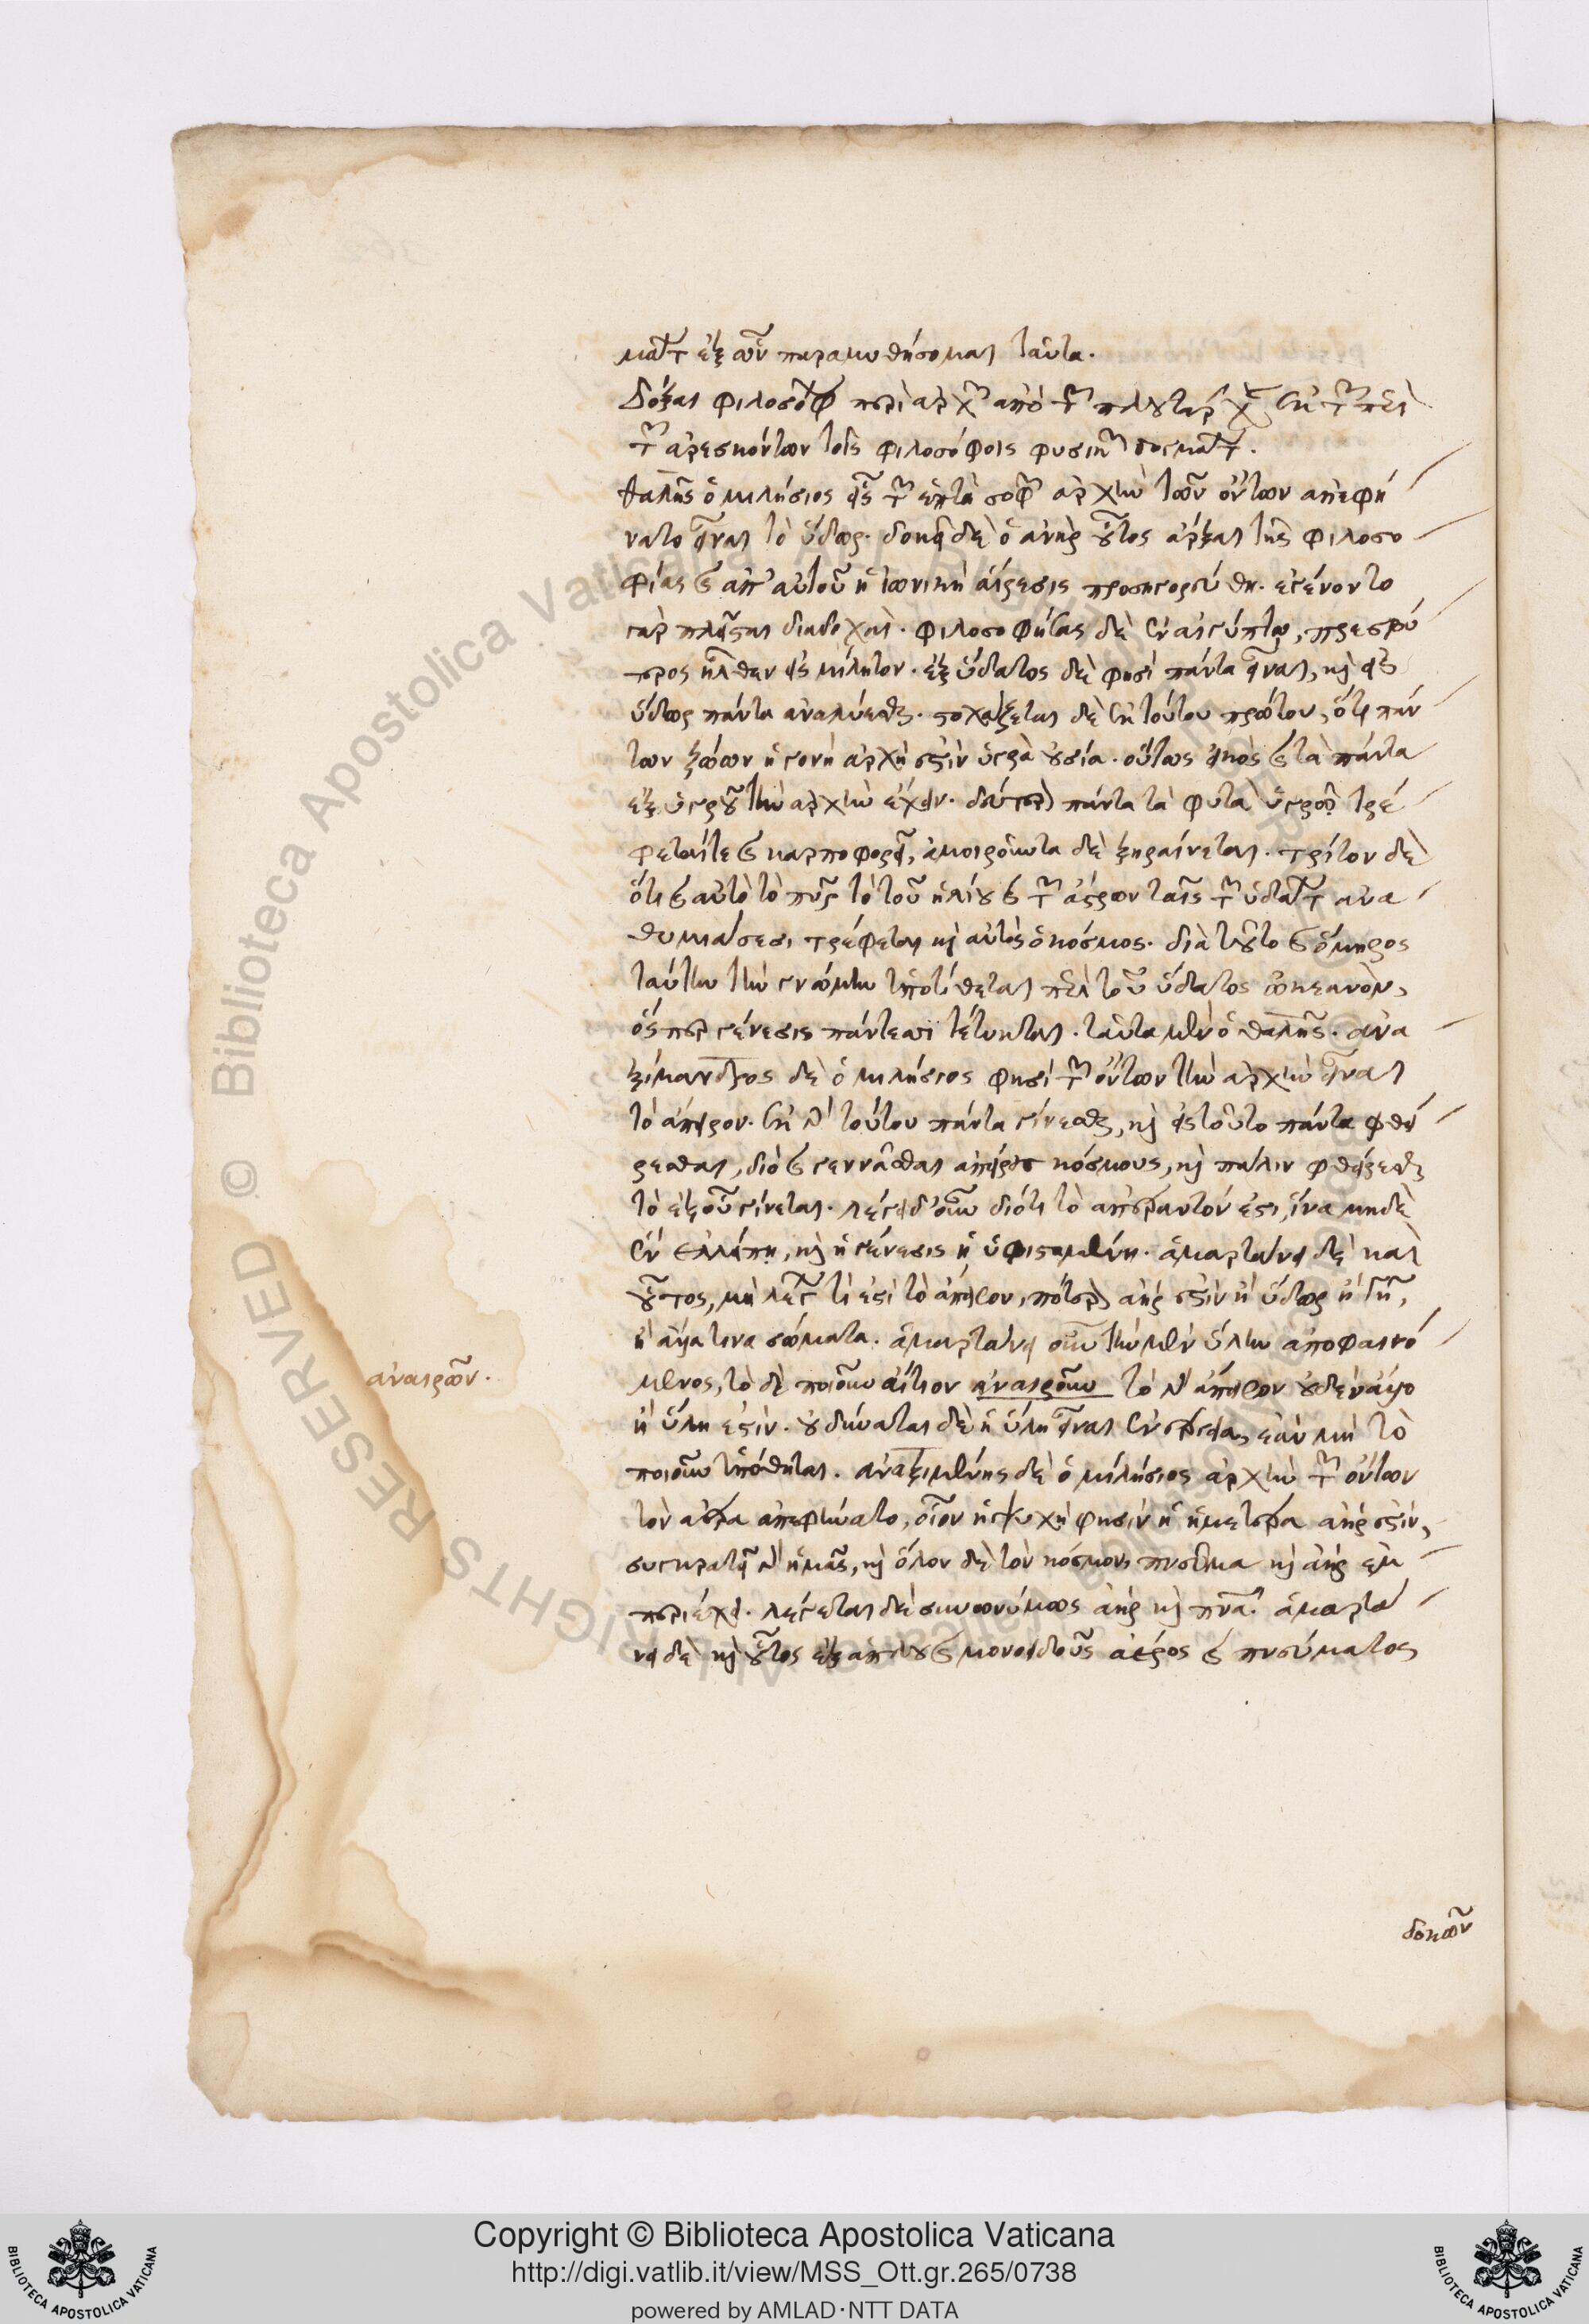 μάτων ἐξ ὧν παραμυθήσομαι ταῦτα.
Δόξαι φιλοσόφων περὶ ἀρχῶν ἀπὸ τῶν πλουτάρχου ἐκ τῶν περὶ
τῶν ἀρεσκόντων τοῖς φιλοσόφοις φυσικῶν δογμάτων.
θαλῆς ὁ μιλήσιος εἷς τῶν ἑπτὰ σοφῶν ἀρχὴν τῶν ὄντων ἀπεφή
νατο εἶναι τὸ ὕδωρ. δοκεῖ δὲ ὁ ἀνὴρ οὗτος ἄρξαι τῆς φιλοσο
φίας καὶ ἀπ' αὐτοῦ ἡ ἰωνικὴ αἵρεσις προσηγορεύθη. ἐγένοντο
γὰρ πλεῖσται διαδοχαί. φιλοσοφήσας δὲ ἐν αἰγύπτῳ, πρεσβύ
τερος ἦλθεν εἰς μίλητον. ἐξ ὕδατος δὲ φησὶ πάντα εἶναι, καὶ εἰς
ὕδωρ πάντα ἀναλύεσθαι. στοχάζεται δὲ ἐκ τούτου πρῶτον, ὅτι πάν
των ζώων ἡ γονὴ ἀρχή ἐστιν ὑγρὰ οὐσία. οὕτως εἰκὸς καὶ τὰ πάντα
ἐξ ὑγροῦ τὴν ἀρχὴν ἔχειν. δεύτερον πάντα τὰ φυτὰ ὑγρῷ τρέ
φεταί τε καὶ καρποφορεῖ, ἀμοιροῦντα δὲ ξηραίνεται. τρίτον δὲ
ὅτι καὶ αὐτὸ τὸ πῦρ τὸ τοῦ ἡλίου καὶ τῶν ἄστρων ταῖς τῶν ὑδάτων ἀνα
θυμιάσεσι τρέφεται καὶ αὐτὸς ὁ κόσμος. διὰ τοῦτο καὶ ὅμηρος
ταύτην τὴν γνώμην ὑποτίθεται περὶ τοῦ ὕδατος ὠκεανὸν,
ὅσπερ γένεσις πάντεσσι τέτυκται. ταῦτα μὲν ὁ θαλῆς. ἀνα
ξίμανδρος δὲ ὁ μιλήσιος φησὶ τῶν ὄντων τὴν ἀρχὴν εἶναι
τὸ ἄπειρον. ἐκ γὰρ τούτου πάντα γίνεσθαι, καὶ εἰς τοῦτο πάντα φθεί
ρεσθαι, διὸ καὶ γεννᾶσθαι ἀπείρους κόσμους, καὶ πάλιν φθείρεσθαι
τὸ ἐξ οὗ γίνεται. λέγει δ' οὖν διότι τὸ ἀπέραντόν ἐστι, ἵνα μηδὲν
ἐλλείπῃ, καὶ ἡ γένεσις ἡ ὑφισταμένη. ἁμαρτάνει δὲ καὶ
οὗτος, μὴ λέγων τί ἐστι τὸ ἄπειρον, πότερον ἀήρ ἐστιν ἢ ὕδωρ ἢ γῆ,
ἢ ἄλλα τινα σώματα. ἁμαρτάνει οὖν τὴν μὲν ὕλην ἀποφαινό
μενος, τὸ δὲ ποιοῦν αἴτιον ἀναιροῦν τὸ γὰρ ἄπειρον οὐδὲν ἄλλο
ἀναιρῶν.
ἢ ὕλη ἐστίν. οὐ δύναται δὲ ἡ ὕλη εἶναι ἐνέργεια, ἐὰν μὴ τὸ
ποιοῦν ὑπόθηται. ἀναξιμένης δὲ ὁ μιλήσιος ἀρχὴν τῶν ὄντων
τὸν ἀέρα ἀπεφήνατο, οἷον ἡ ψυχὴ φησὶν ἡ ἡμετέρα ἀήρ ἐστιν,
συγκρατεῖ γὰρ ἡμᾶς, καὶ ὅλον δὲ τὸν κόσμον πνεῦμα καὶ ἀὴρ ἐμ
περιέχει. λέγεται δὲ συνωνύμως ἀὴρ καὶ πνεῦμα. ἁμαρτά
νει δὲ καὶ οὗτος ἐξ ἁπλοῦ καὶ μονοειδοῦς ἀέρος καὶ πνεύματος
δοκῶν
Copyright © Biblioteca Apostolica Vaticana
http://digi.vatlib.it/view/MSS_Ott.gr.265/0738
powered by AMLAD·NTT DATA